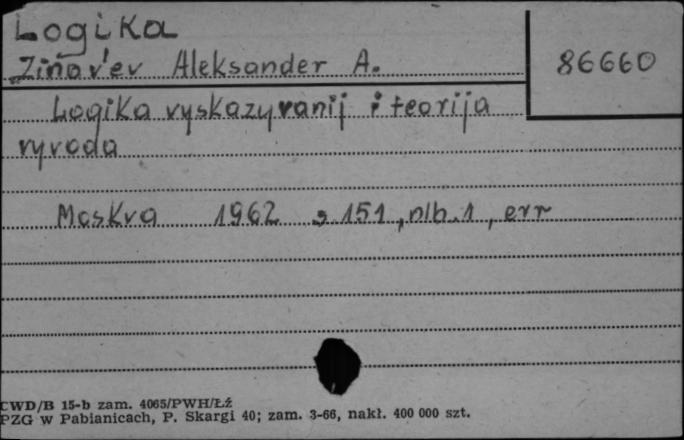 Logika
Zinov'ev Aleksander A.
86660
Logika vyskazyvanij i teorija
vyvoda
Moskva 1962 s. 151, nlb. 1, err
CWD/B 15-b zam. 4065/PWH/Łź
PZG w Pabianicach, P. Skargi 40; zam. 3-66, nakł. 400 000 szt.